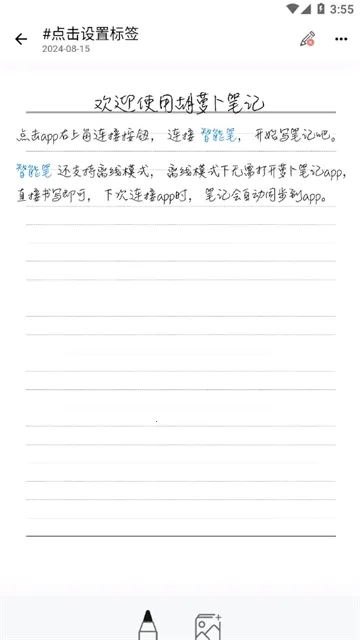 3:55
#点击设置标签
2024-08-15
欢迎使用胡萝卜笔记
点击app右上角连接按钮，连接 智能笔，开始写笔记吧。
智能笔 还支持离线模式，离线模式下无需打开萝卜笔记app，
直接书写即可，下次连接app时，笔记会自动同步到app。